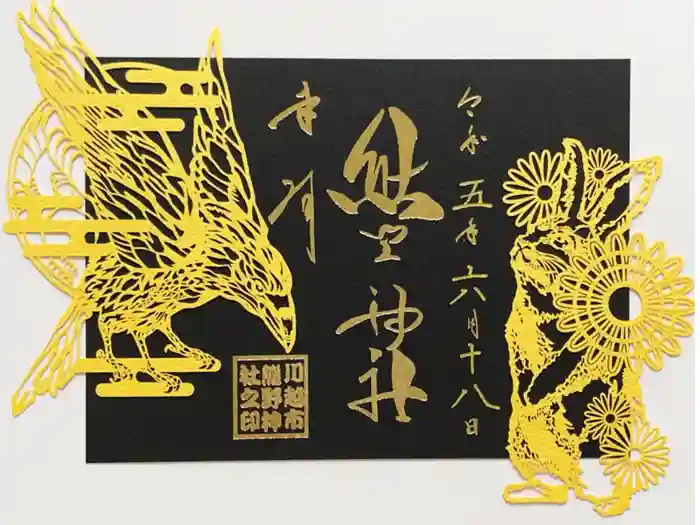 令和五年六月十八日
熊野神社
奉拝
川越市
熊野神
社之印